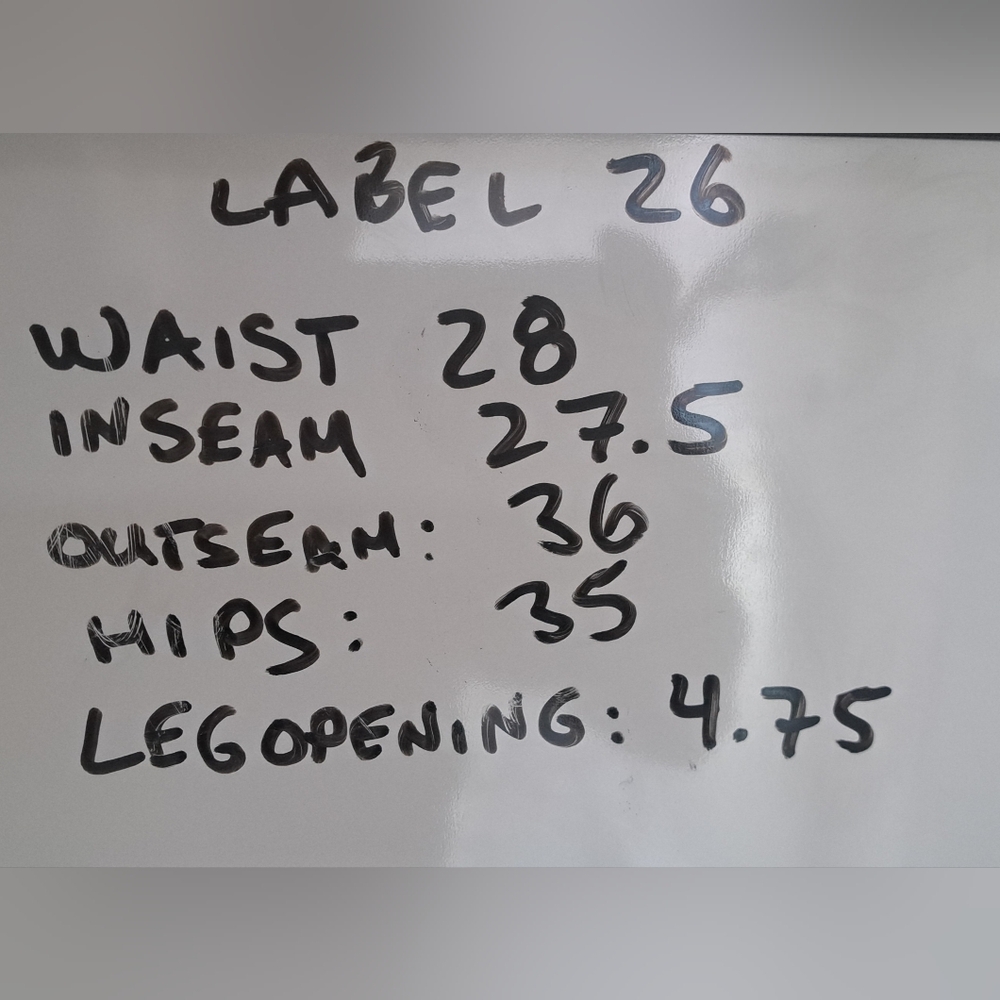 LABEL 26
WAIST 28
INSEAM 27.5
OUTSEAM: 36
HIPS: 35
LEG OPENING: 4.75